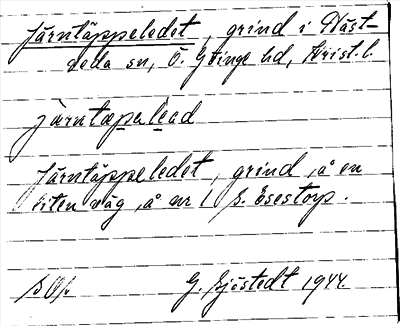 Järntäppeledet, grind i Näst-
deda sn, Ö. Göinge hd, Krist. l.
järntæpalead
Järntäppeledet, grind, å en
liten väg, å nr 1 S. Esestorp.
G. Sjöstedt 1944.